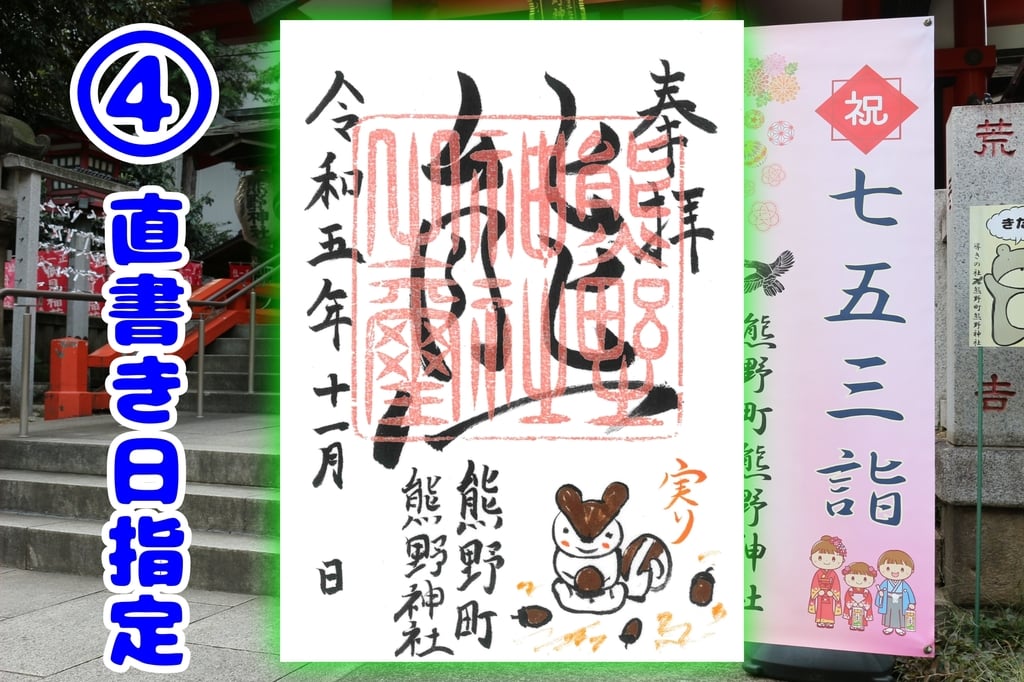 ④
直書き日指定
奉拝
熊野
神社
令和五年十一月　日
熊野町
熊野神社
実り
祝
七五三詣
熊野町熊野神社
荒
吉
きた
導きの社 熊野町熊野神社